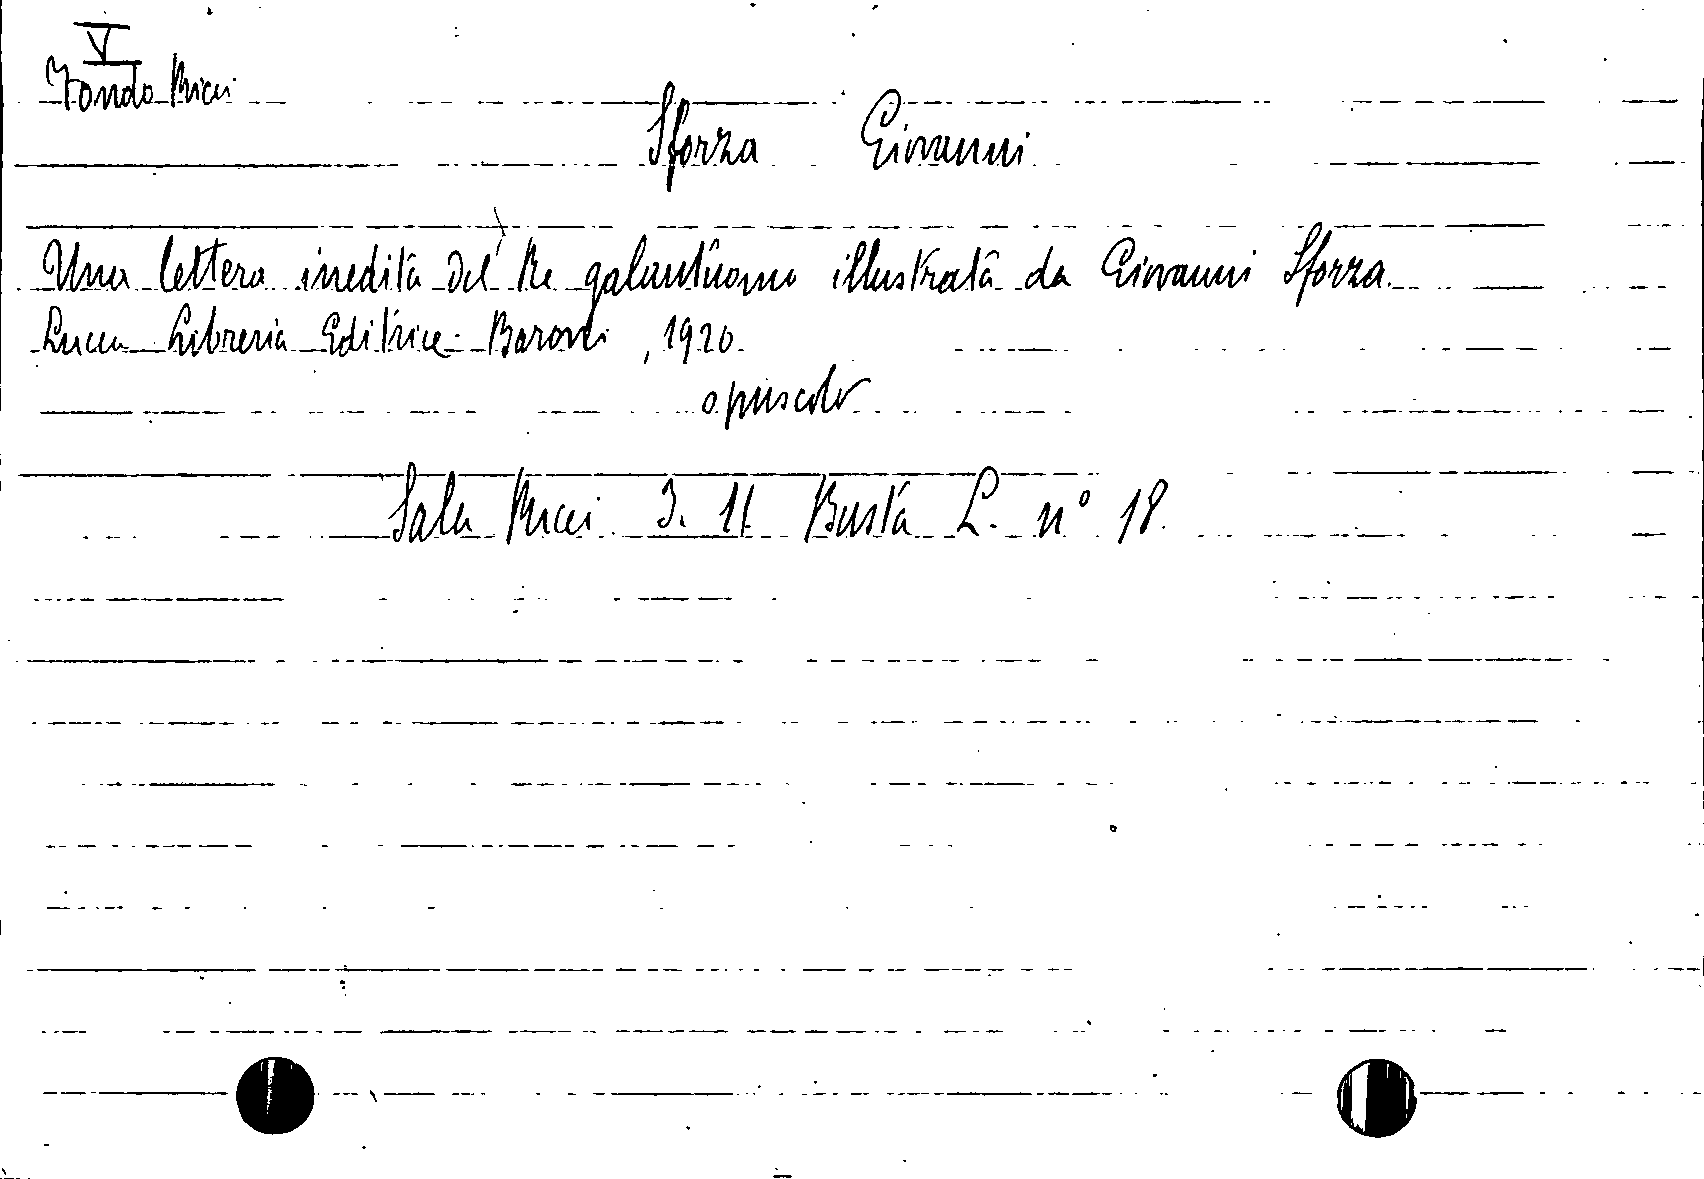 V
Fondo Ricci
Sforza Giovanni
Una lettera inedita del Re galantuomo illustrata da Giovanni Sforza.
Lucca Libreria Editrice Baroni, 1920.
opuscolo
Sala Ricci 3. 11. Busta L. n° 18.